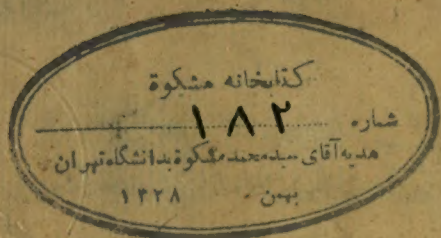 کتابخانه مشکوة
شماره ۱۸۲
هدیه آقای سید محمد مشکوة بدانشگاه تهران
بهمن ۱۳۲۸